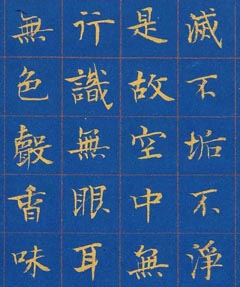 滅不垢不淨
是故空中無
行識無眼耳
無色聲香味